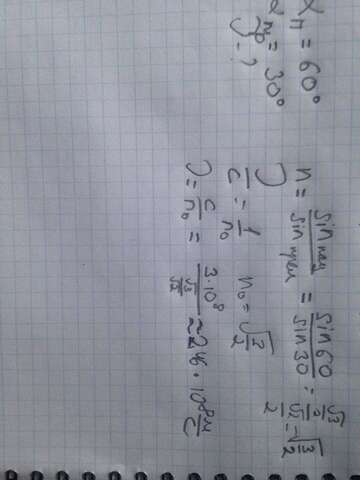 α п = 60°
α пр = 30°
υ - ?
n = sin пад / sin прел = sin 60 / sin 30 = √3/2 / √2/2 = √3/2
υ/c = 1/n₀ n₀ = √3/2
υ = c/n₀ = 3·10⁸ / √3/√2 ≈ 2,46·10⁸ м/с